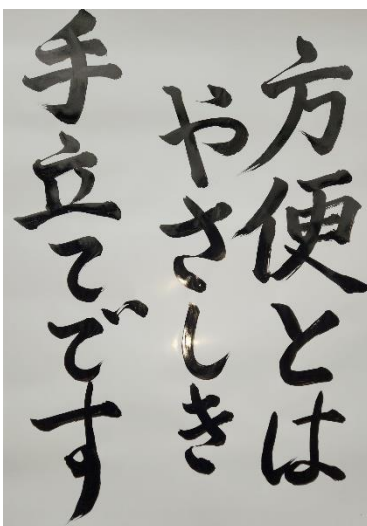 方便とは
やさしき
手立てです